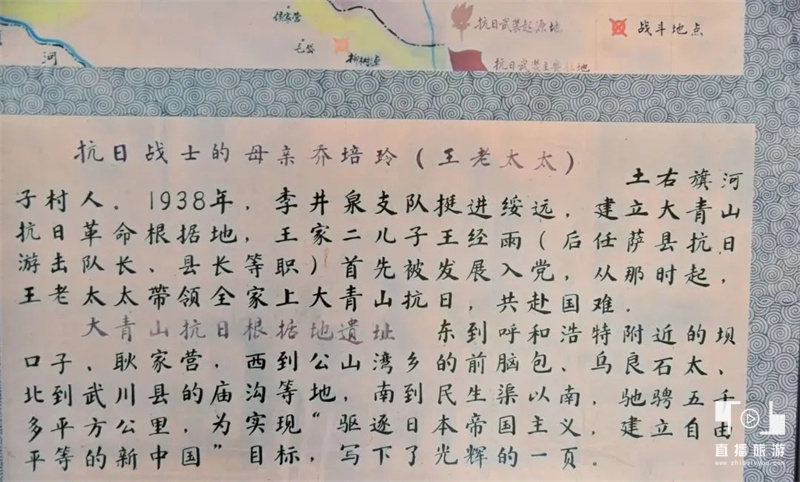 侯家营
毛岱
柳树淖
河
抗日武装起源地
战斗地点
抗日武装
地
抗日战士的母亲乔培玲(王老太太)
土右旗河
子村人.1938年,李井泉支队挺进绥远,建立大青山
抗日革命根据地,王家二儿子王经雨(后任萨县抗日
游击队长、县长等职)首先被发展入党,从那时起,
王老太太带领全家上大青山抗日,共赴国难.
大青山抗日根据地遗址 东到呼和浩特附近的坝
口子、耿家营,西到公山湾乡的前脑包、乌良石太、
北到武川县的庙沟等地,南到民生渠以南,驰骋五千
多平方公里,为实现“驱逐日本帝国主义,建立自由
平等的新中国”目标,写下了光辉的一页.
直播旅游
www.zhibolvyou.com